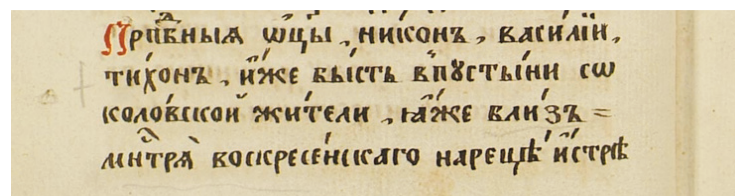 Прпⷣбныѧ ѡ҆ц҃ы , никонъ , василїй ,
ти́хонъ , и҆́же бы́сть в̾пꙋсты́ни сѡ
коло́вской жители , ꙗ҆́же бли́зъ =
мн҃трѧ̀ воскресе́нскагѡ нарецѣ̀ и҆́стрѣ